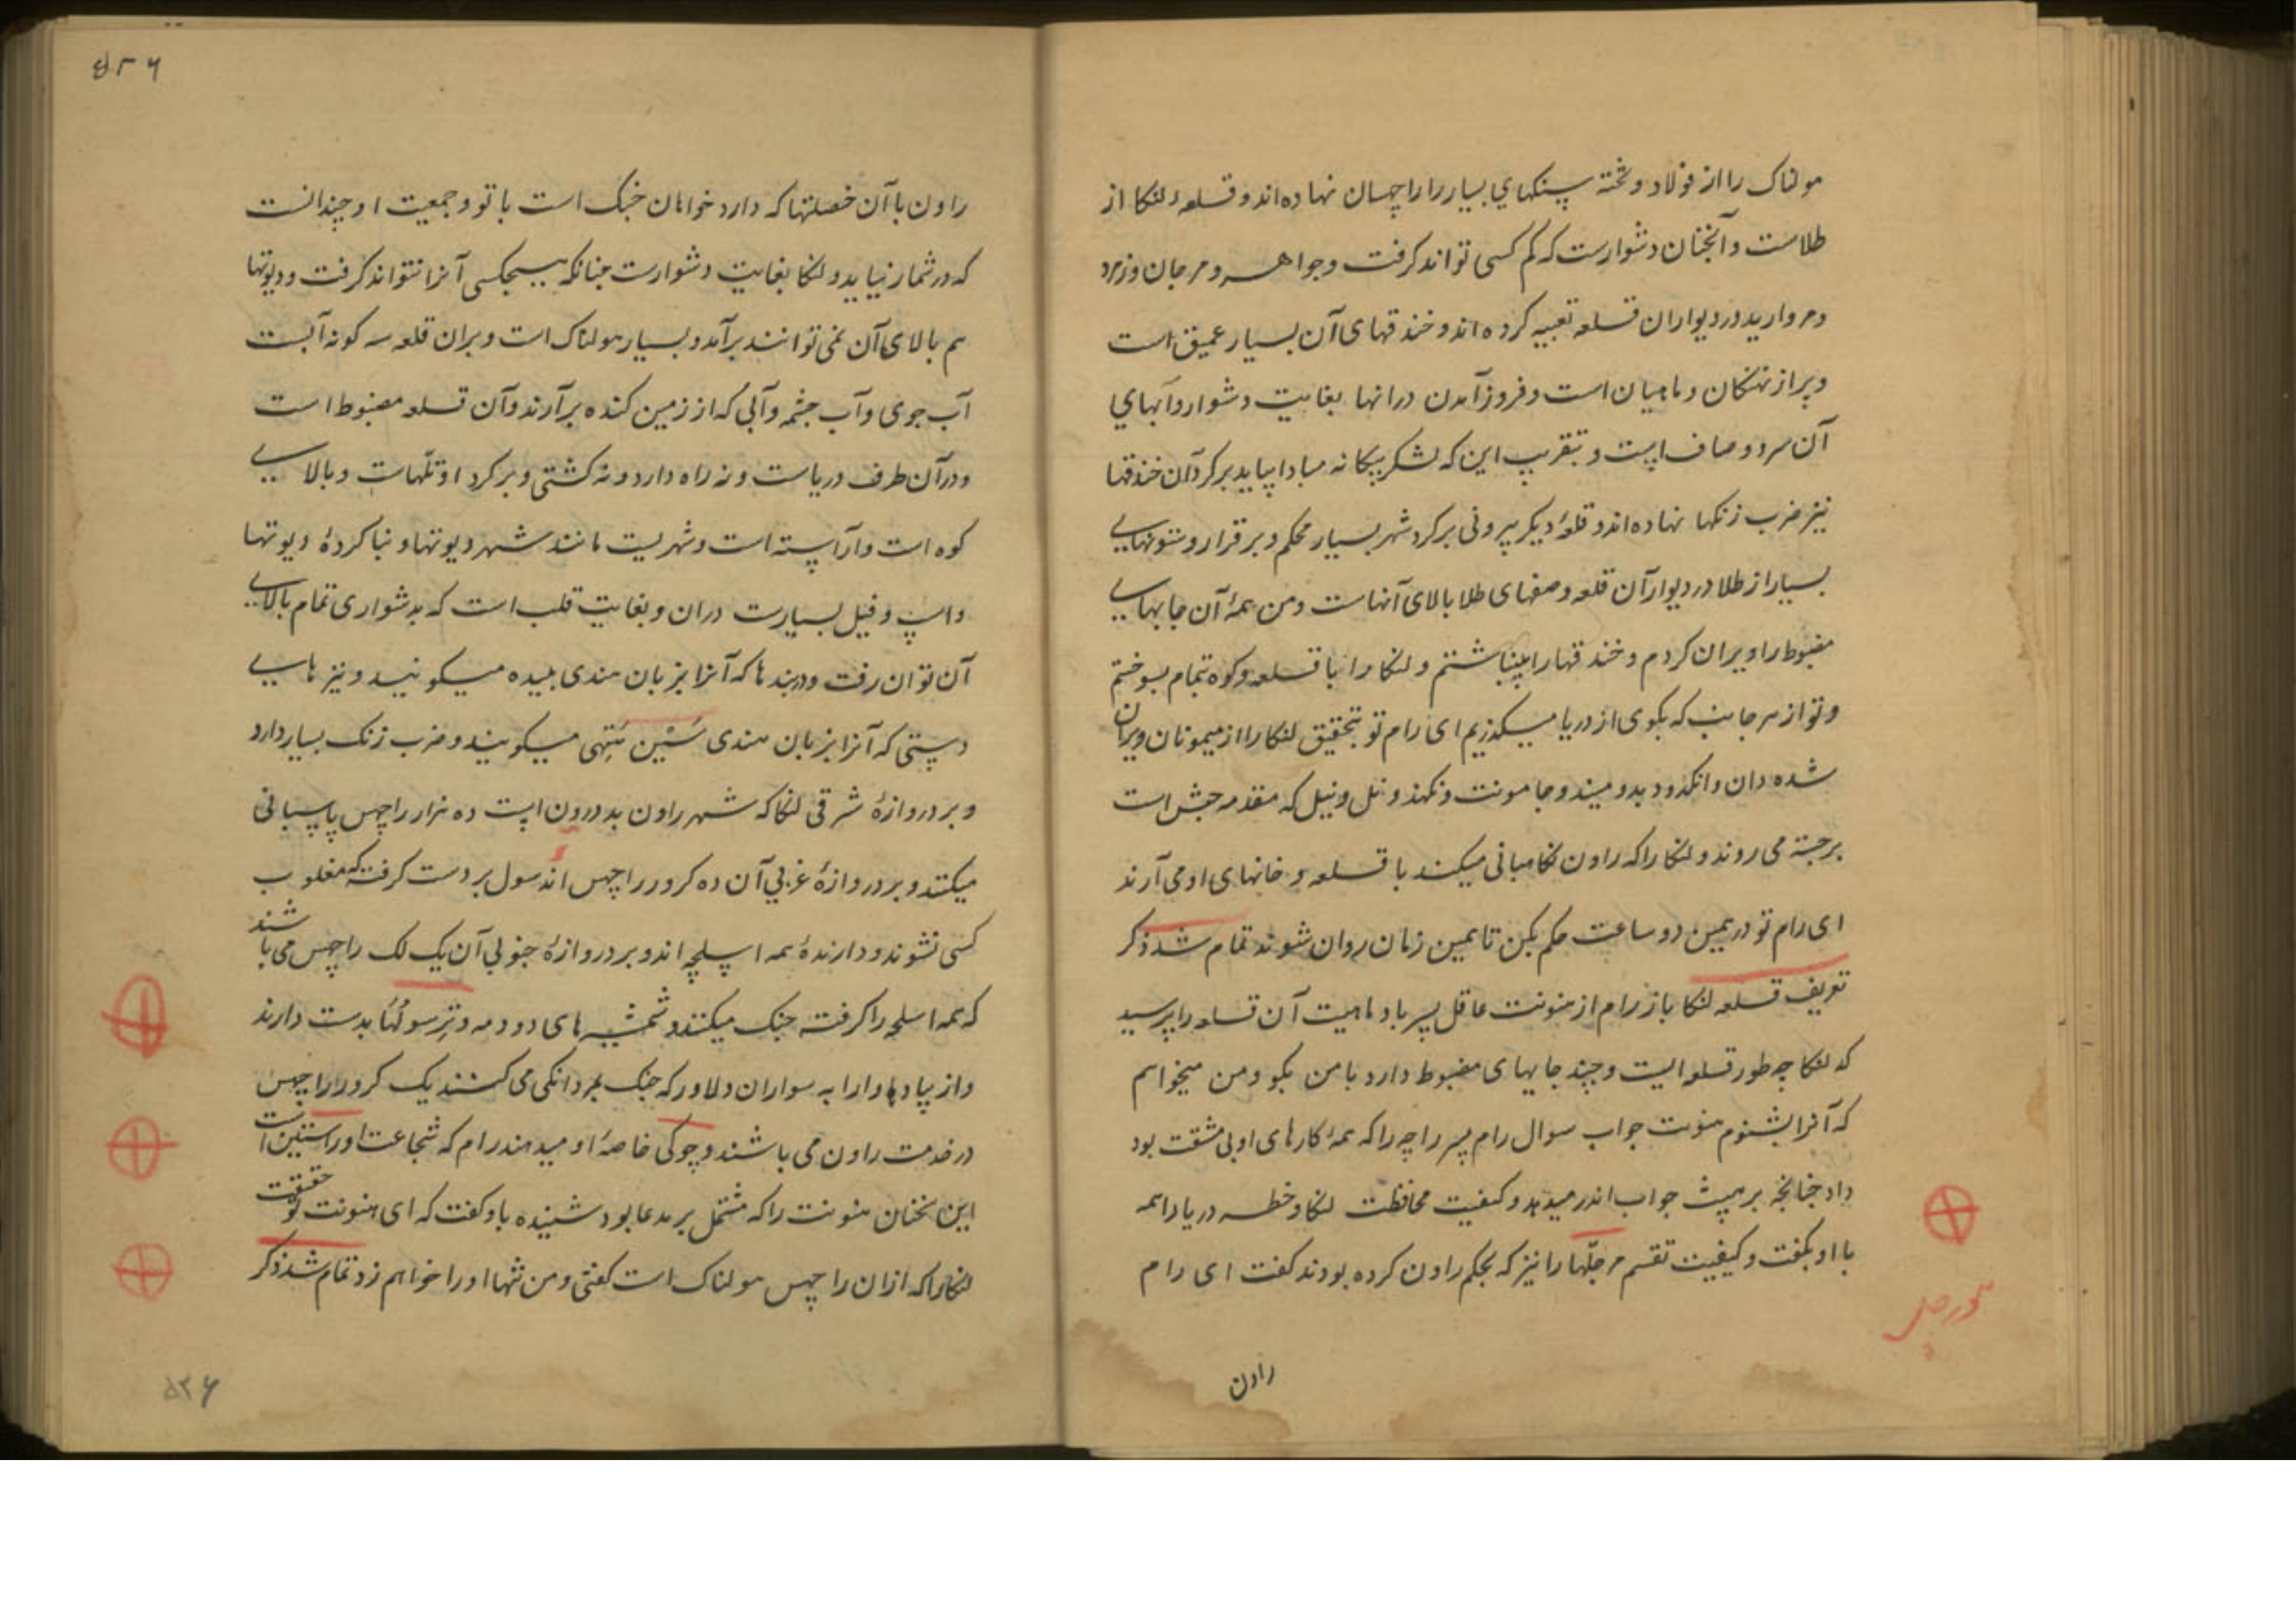 مولناک را از فولاد و تخته سنکهای بسیار را راچهسان نهاده‌اند و قلعه لنکا از
طلاست و آنچنان دشوارست که کم کسی تواند کرفت و جواهر و مرجان و زمرد
و مروارید در دیواران قلعه تعبیه کرده‌اند و خندقهای آن بسیار عمیق است
و پر از نهنکان و ماهیان است و فروز آمدن درانها بغایت دشوار و آبهای
آن سرد و صاف است و بتقریب این که لشکر بیکانه مبادا بیاید بر کرد آن خندقها
نیز ضرب زنکها نهاده‌اند و قلعۀ دیکر بیرونی بر کرد شهر بسیار محکم و برقرار و ستونهایی
بسیار از طلا در دیوار آن قلعه و صفهای طلا بالای آنهاست و من همۀ آن جایهایی
مضبوط را ویران کردم و خندقها را بینباشتم و لنکا را با قلعه و کوه تمام بسوختم
و تو از هر جانب که بکوی از دریا میکذریم ای رام تو بتحقیق لنکا را از میمونان ویران
شده دان و انکد و دبد و میند و جامونت و نکهذ و نل و نیل که مقدمه جیش است
برجسته می روند و لنکا را که راون نکاهبانی میکند با قلعه و خانهای او می آرند
ای رام تو در همین دو ساعت حکم بکن تا همین زمان روان شوند تمام شد ذکر
تعریف قلعه لنکا باز رام از هنونت عاقل پسر باد ماهیت آن قلعه را پرسید
که لنکا چه طور قلعه ایست و چند جایهای مضبوط دارد با من بکو و من میخواهم
که آنرا بشنوم هنونت جواب سوال رام پسر راجه را که همۀ کارهای او بی مشقت بود
داد چنانچه برهپت جواب اندر میدهد و کیفیت محافظت لنکا و خطر دریا را همه
با او بکفت و کیفیت تقسم مرجلّها را نیز که بحکم راون کرده بودند کفت ای رام
راون
۵۲۶
راون با آن خصلتها که دارد خواهان جنک است با تو و جمعیت او چندانست
که در شمار نیاید و لنکا بغایت دشوارست چنانکه هیچکسی آنرا نتواند کرفت و دیوتها
هم بالای آن نمی توانند برآمد و بسیار هولناک است و بران قلعه سه کونه آبست
آب جوی و آب چشمه و آبی که از زمین کنده برآرند و آن قلعه مضبوط است
و در آن طرف دریاست و نه راه دارد و نه کشتی و بر کرد او تلّهاست و بالایی
کوه است و آراسته است و شهریست مانند شهر دیوتها و بنا کردۀ دیوتها
و اسپ و فیل بسیارست دران و بغایت قلب است که بدشواری تمام بالایی
آن توان رفت و در بندها که آنرا بزبان هندی بلیده میکویند و نیز هایی
دستی که آنرا بزبان هندی سَتین هَتِهی میکویند و ضرب زنک بسیار دارد
و بر دروازۀ شرقی لنکا که شهر راون بد درون است ده هزار راچهس پاسبانی
میکنند و بر دروازۀ غربی آن ده کرور راچهس اند سول بر دست کرفته که مغلوب
کسی نشوند و دارندۀ همه اسلحه اند و بر دروازۀ جنوبی آن یک لک راچهس می باشند
که همه اسلحه را کرفته جنک میکنند و شمشیرهای دو دمه و ترسولُها بدست دارند
و از پیادها و ارابه سواران دلاور که جنک بمردانکی می کنند یک کرور راچهس
در خدمت راون می باشند و چوکی خاصۀ او میدهند رام که شجاعت او راستین است
این سخنان هنونت را که مشتمل بر مدعا بود شنیده باو کفت که ای هنونت تو حقیقت
لنکا را که ازان راچهس هولناک است کفتی و من تنها او را خواهم زد تمام شد ذکر
۵۲۶